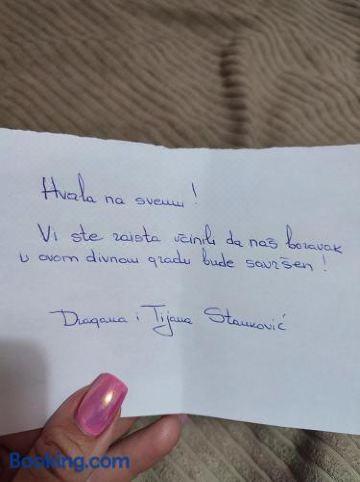 Hvala na svemu!
Vi ste zaista učinili da naš boravak
u ovom divnom gradu bude savršen!
Dragana i Tijana Stanković
Booking.com